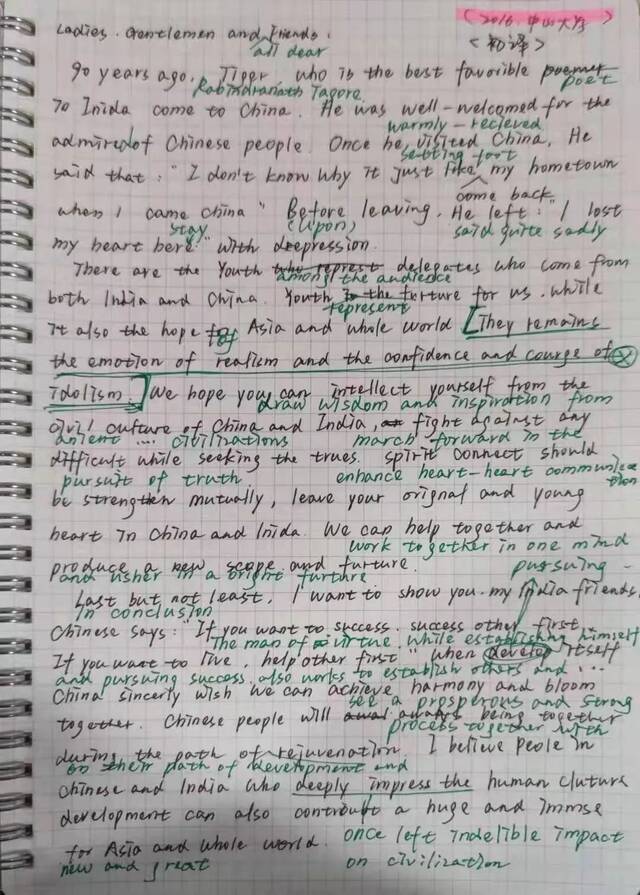 (2016.中山大学)
Ladies. Gentlemen and Friends.
<初译>
all dear
90 years ago, Tiger, who is the best favorible poemer poet
Rabindranath Tagore
To Inida come to China. He was well-welcomed for the
warmly-recieved
admiredof Chinese people. Once he visited China, He
setting foot
said that: "I don't know why it just like my hometown
come back
when I came China" Before leaving, He left: "I lost
stay (upon) said quite sadly
my heart here" with depression.
There are the Youth who represt delegates who come from
amongst the audience
both India and China. Youth is the furture for us. while
represent
it also the hope for Asia and whole world [They remains
of
the emotion of realism and the confidence and courge of
idolism.] We hope you can intellect yourself from the
draw wisdom and inspiration from
civil culture of China and India, fight against any
anient ... civilinations march forward in the
difficult while seeking the trues. spirit connect should
pursuit of truth. enhance heart-heart communication
be strengthen mutually, leave your orignal and young
heart in China and Inida. We can help together and
work together in one mind
produce a new scope and furture.
and usher in a bright furture pursuing
Last but not least, I want to show you my India friends,
in conclusion
Chinese says: "If you want to success. success other first.
The man of virtue, while establishing himself
If you want to live, help other first" when develop itself
and pursuing success, also works to establish others and ...
China sincerly wish we can achieve harmony and bloom
see a prosperous and strong
together. Chinese people will always being together
process together with
during the path of rejuvenation. I believe peole in
on their path of development and
Chinese and India who deeply impress the human cluture
development can also contribut a huge and immse
for Asia and whole world. once left indelible impact
new and great on civilization